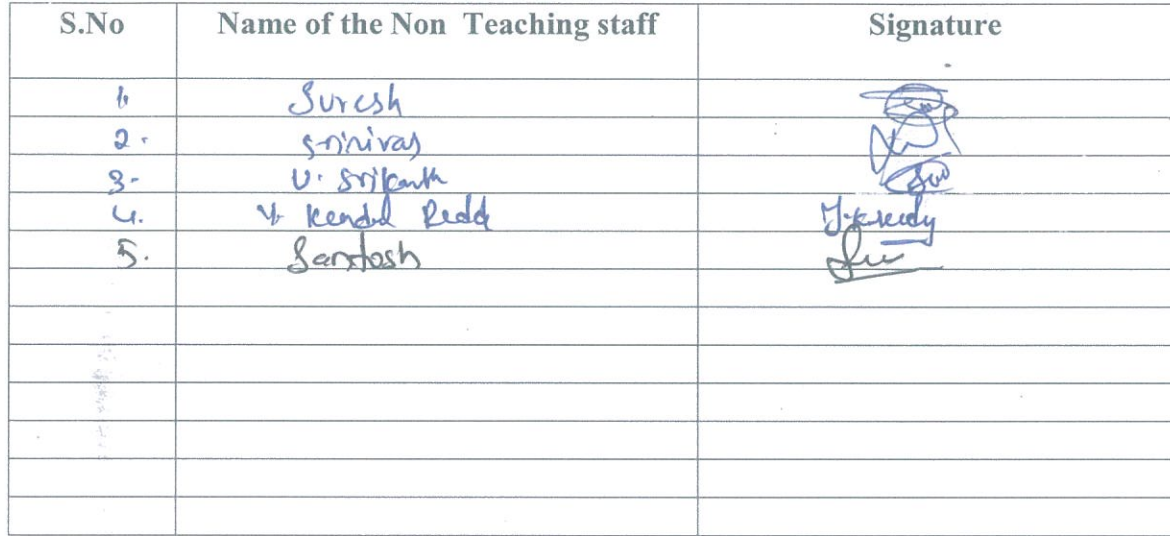 S.No Name of the Non Teaching staff Signature
1. Suresh
2. Srinivas
3. U. Srikanth
4. Y. Redd
5. Santosh